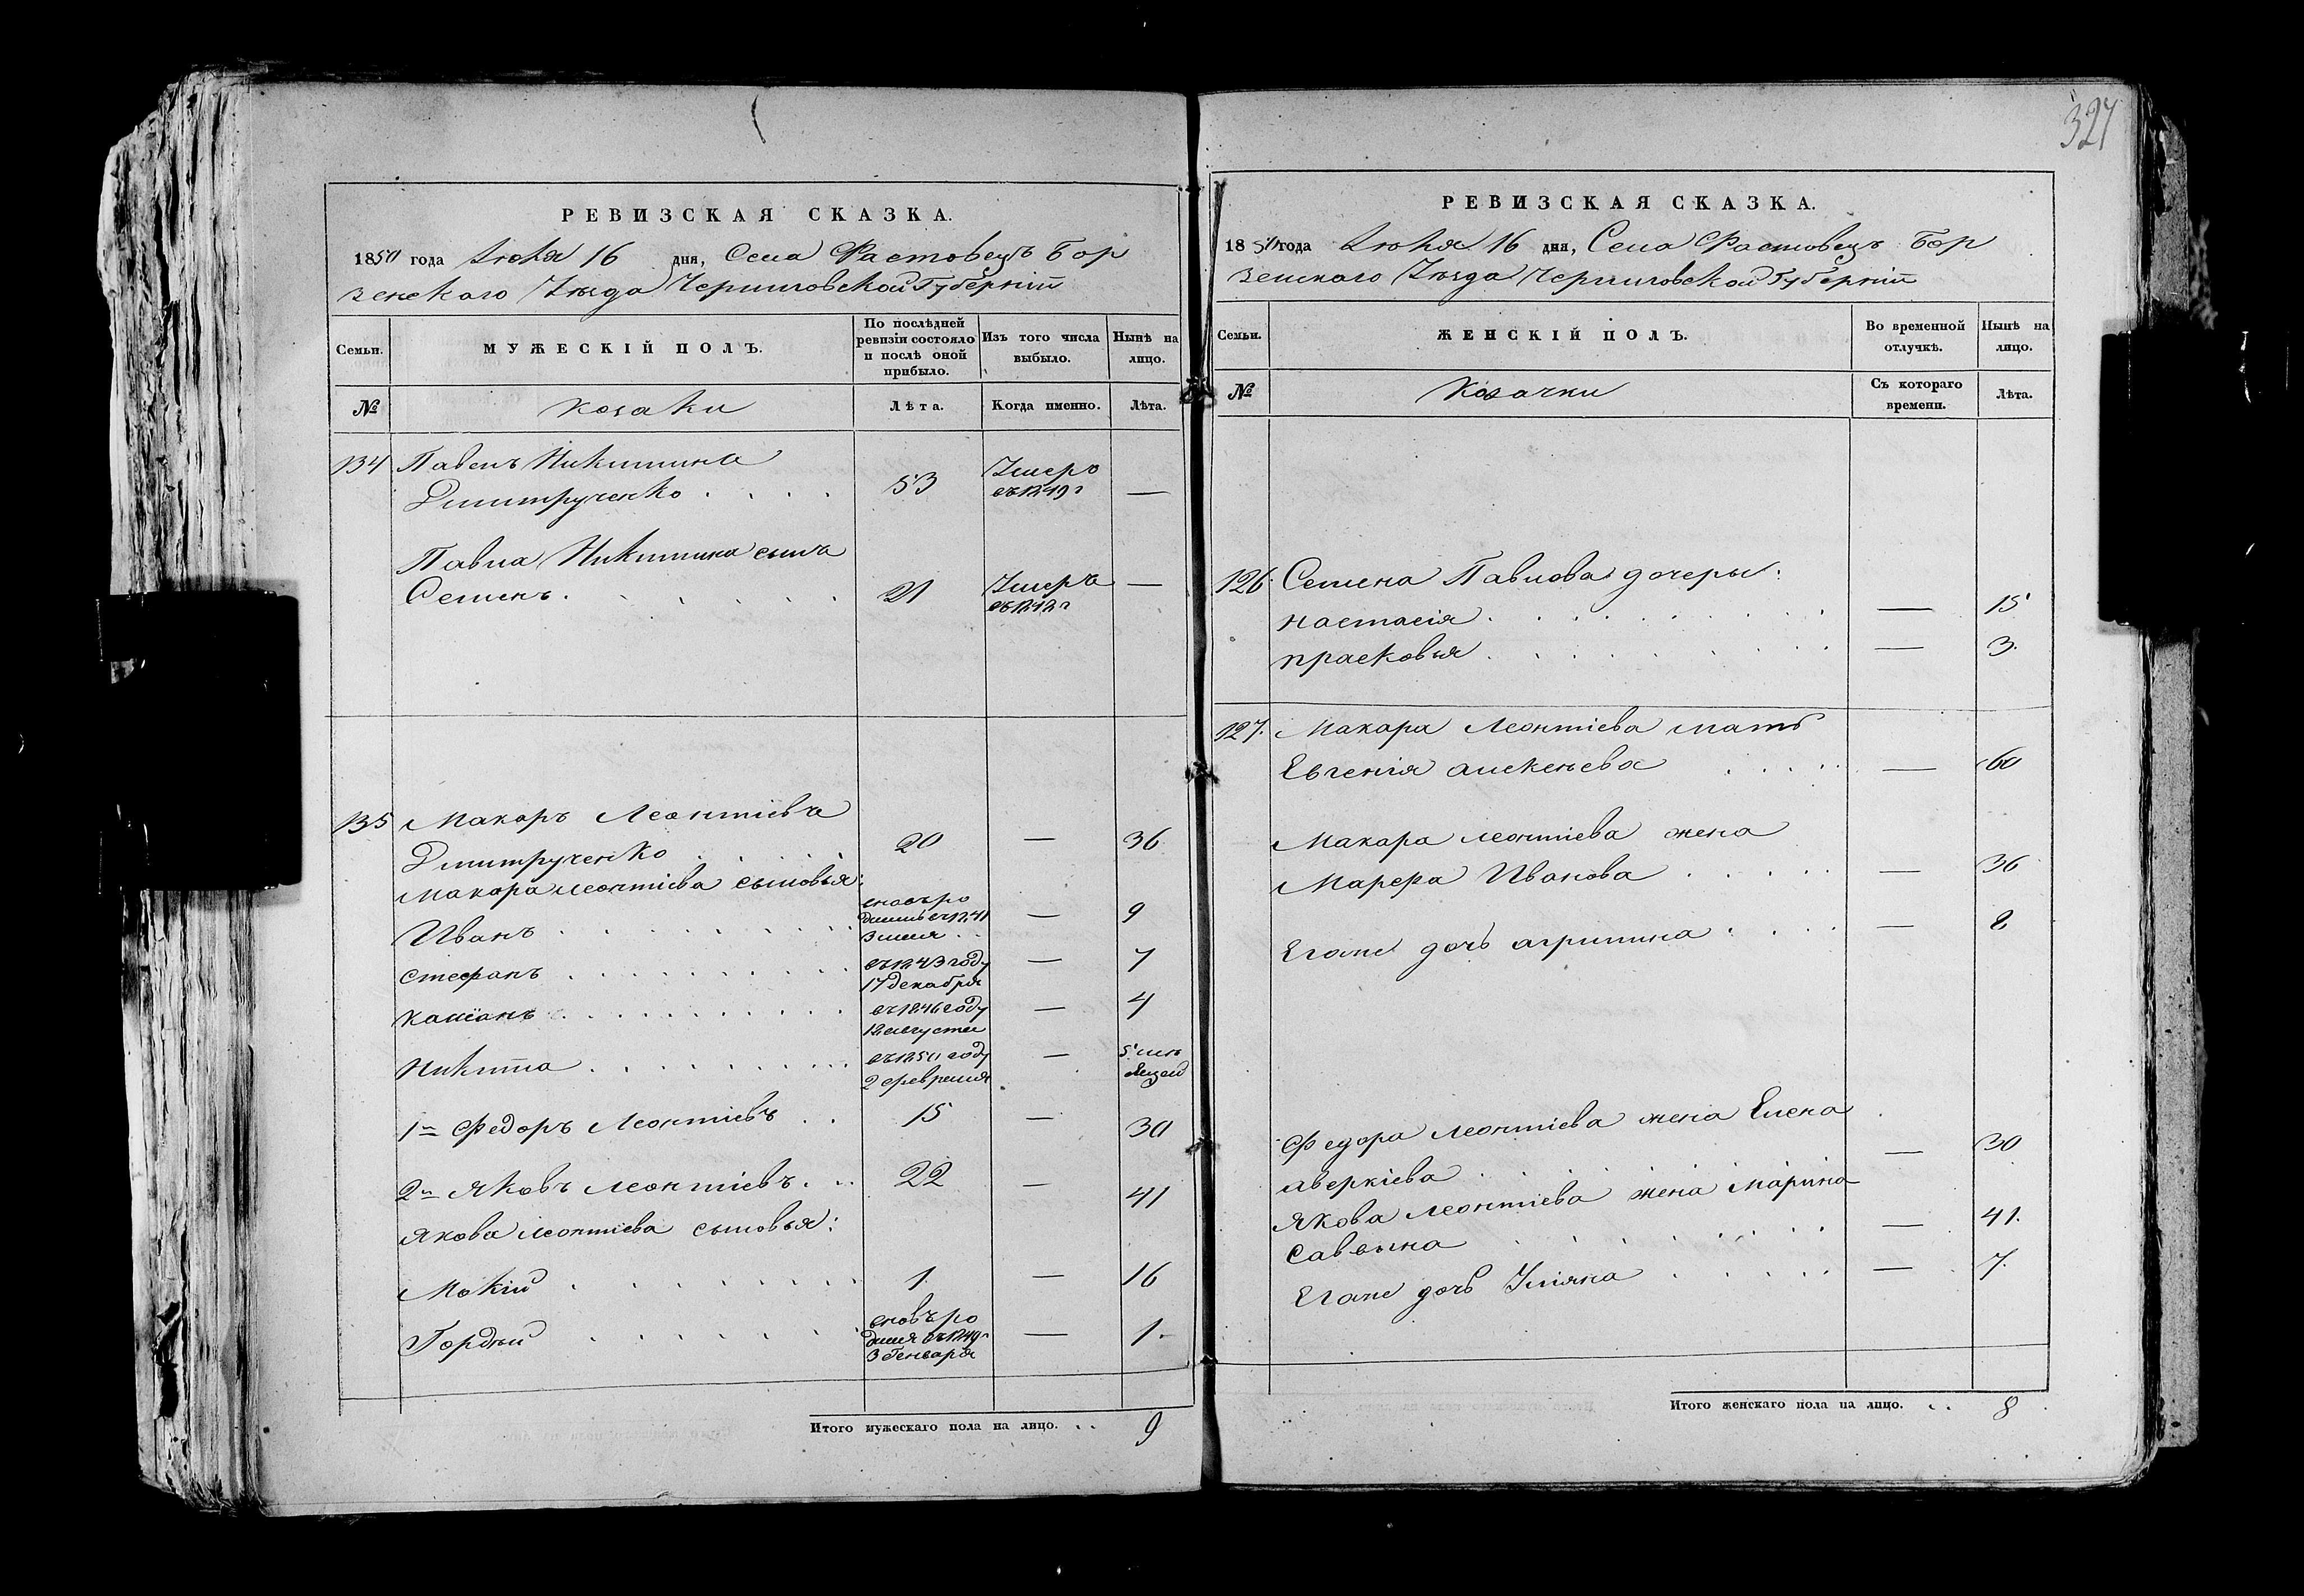 327
РЕВИЗСКАЯ СКАЗКА.
1850 года Июня 16 дня, Села Фастовецъ Бор
зенскаго Уѣзда Черниговской Губерніи
Семьи.
МУЖЕСКІЙ ПОЛЪ.
По послѣдней
ревизіи состояло
и послѣ оной
прибыло.
Изъ того числа
выбыло.
Нынѣ на
лицо.
№
Козаки
Лѣта.
Когда именно.
Лѣта.
134 Павелъ Никитинъ
Дмитрученко . . . . 53 Умеръ
въ 1849г —
Павла Никитина сынъ
Семенъ . . . . . . 21 Умеръ —
въ 1842г
135 Макаръ Леонтіевъ
Дмитрученко . . . . . 20 — 36
Макара Леонтіева сыновья:
Иванъ . . . . . . . . новъро
дился въ 1841
3 мая . . — 9
Стефанъ . . . . . . . . въ 1843 году
17 декабря — 7
Касіанъ . . . . . . . . въ 1846 году
12 августа — 4
Никита . . . . . . . . въ 1850 году
2 февраля — 5 мѣ
сяцей
1й Федоръ Леонтіевъ . . 15 — 30
2й Яковъ Леонтіевъ . . . 22 — 41
Якова Леонтіева сыновья:
Мокій . . . . . . . . 1. — 16
Гордѣй . . . . . . . новъро
дился въ 1849г
3 Генваря — 1.
Итого мужескаго пола на лицо. . . 9
РЕВИЗСКАЯ СКАЗКА.
1850 года Июня 16 дня, Села Фастовецъ Бор
зенскаго Уѣзда Черниговской Губерніи
Семьи.
ЖЕНСКІЙ ПОЛЪ.
Во временной
отлучкѣ.
Нынѣ на
лицо.
№
Козачки
Съ котораго
времени.
Лѣта.
126. Семена Павлова дочеры:
Настасія . . . . . . . . — 15
Прасковья . . . . . . . . — 3.
127. Макара Леонтіева мать
Евгенія Алексѣева . . . . — 60
Макара Леонтіева жена
Марфа Иванова . . . . . — 36
Егоже дочь Агрипина . . . . — 8
Федора Леонтіева жена Елена
Аверкіева . . . . . . — 30
Якова Леонтіева жена Марина
Саввична . . . . . . . — 41.
Егоже дочь Уліяна . . . . . — 7.
Итого женскаго пола на лицо. . . 8